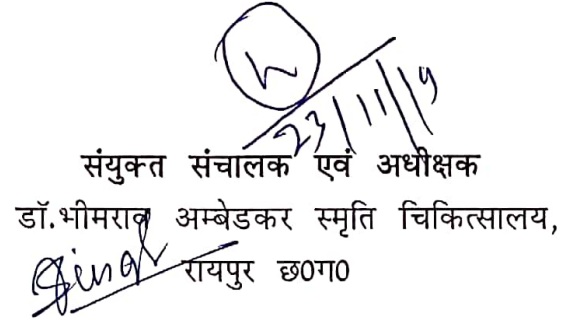 23/11/19
संयुक्त संचालक एवं अधीक्षक
डॉ.भीमराव अम्बेडकर स्मृति चिकित्सालय,
रायपुर छ0ग0